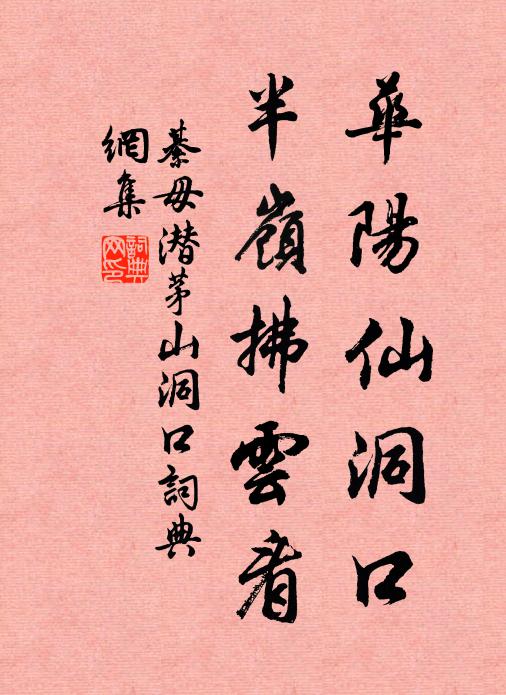 華陽仙洞口
半嶺拂雲看
綦毋潜茅山洞口詞典
網集
詞典
网印